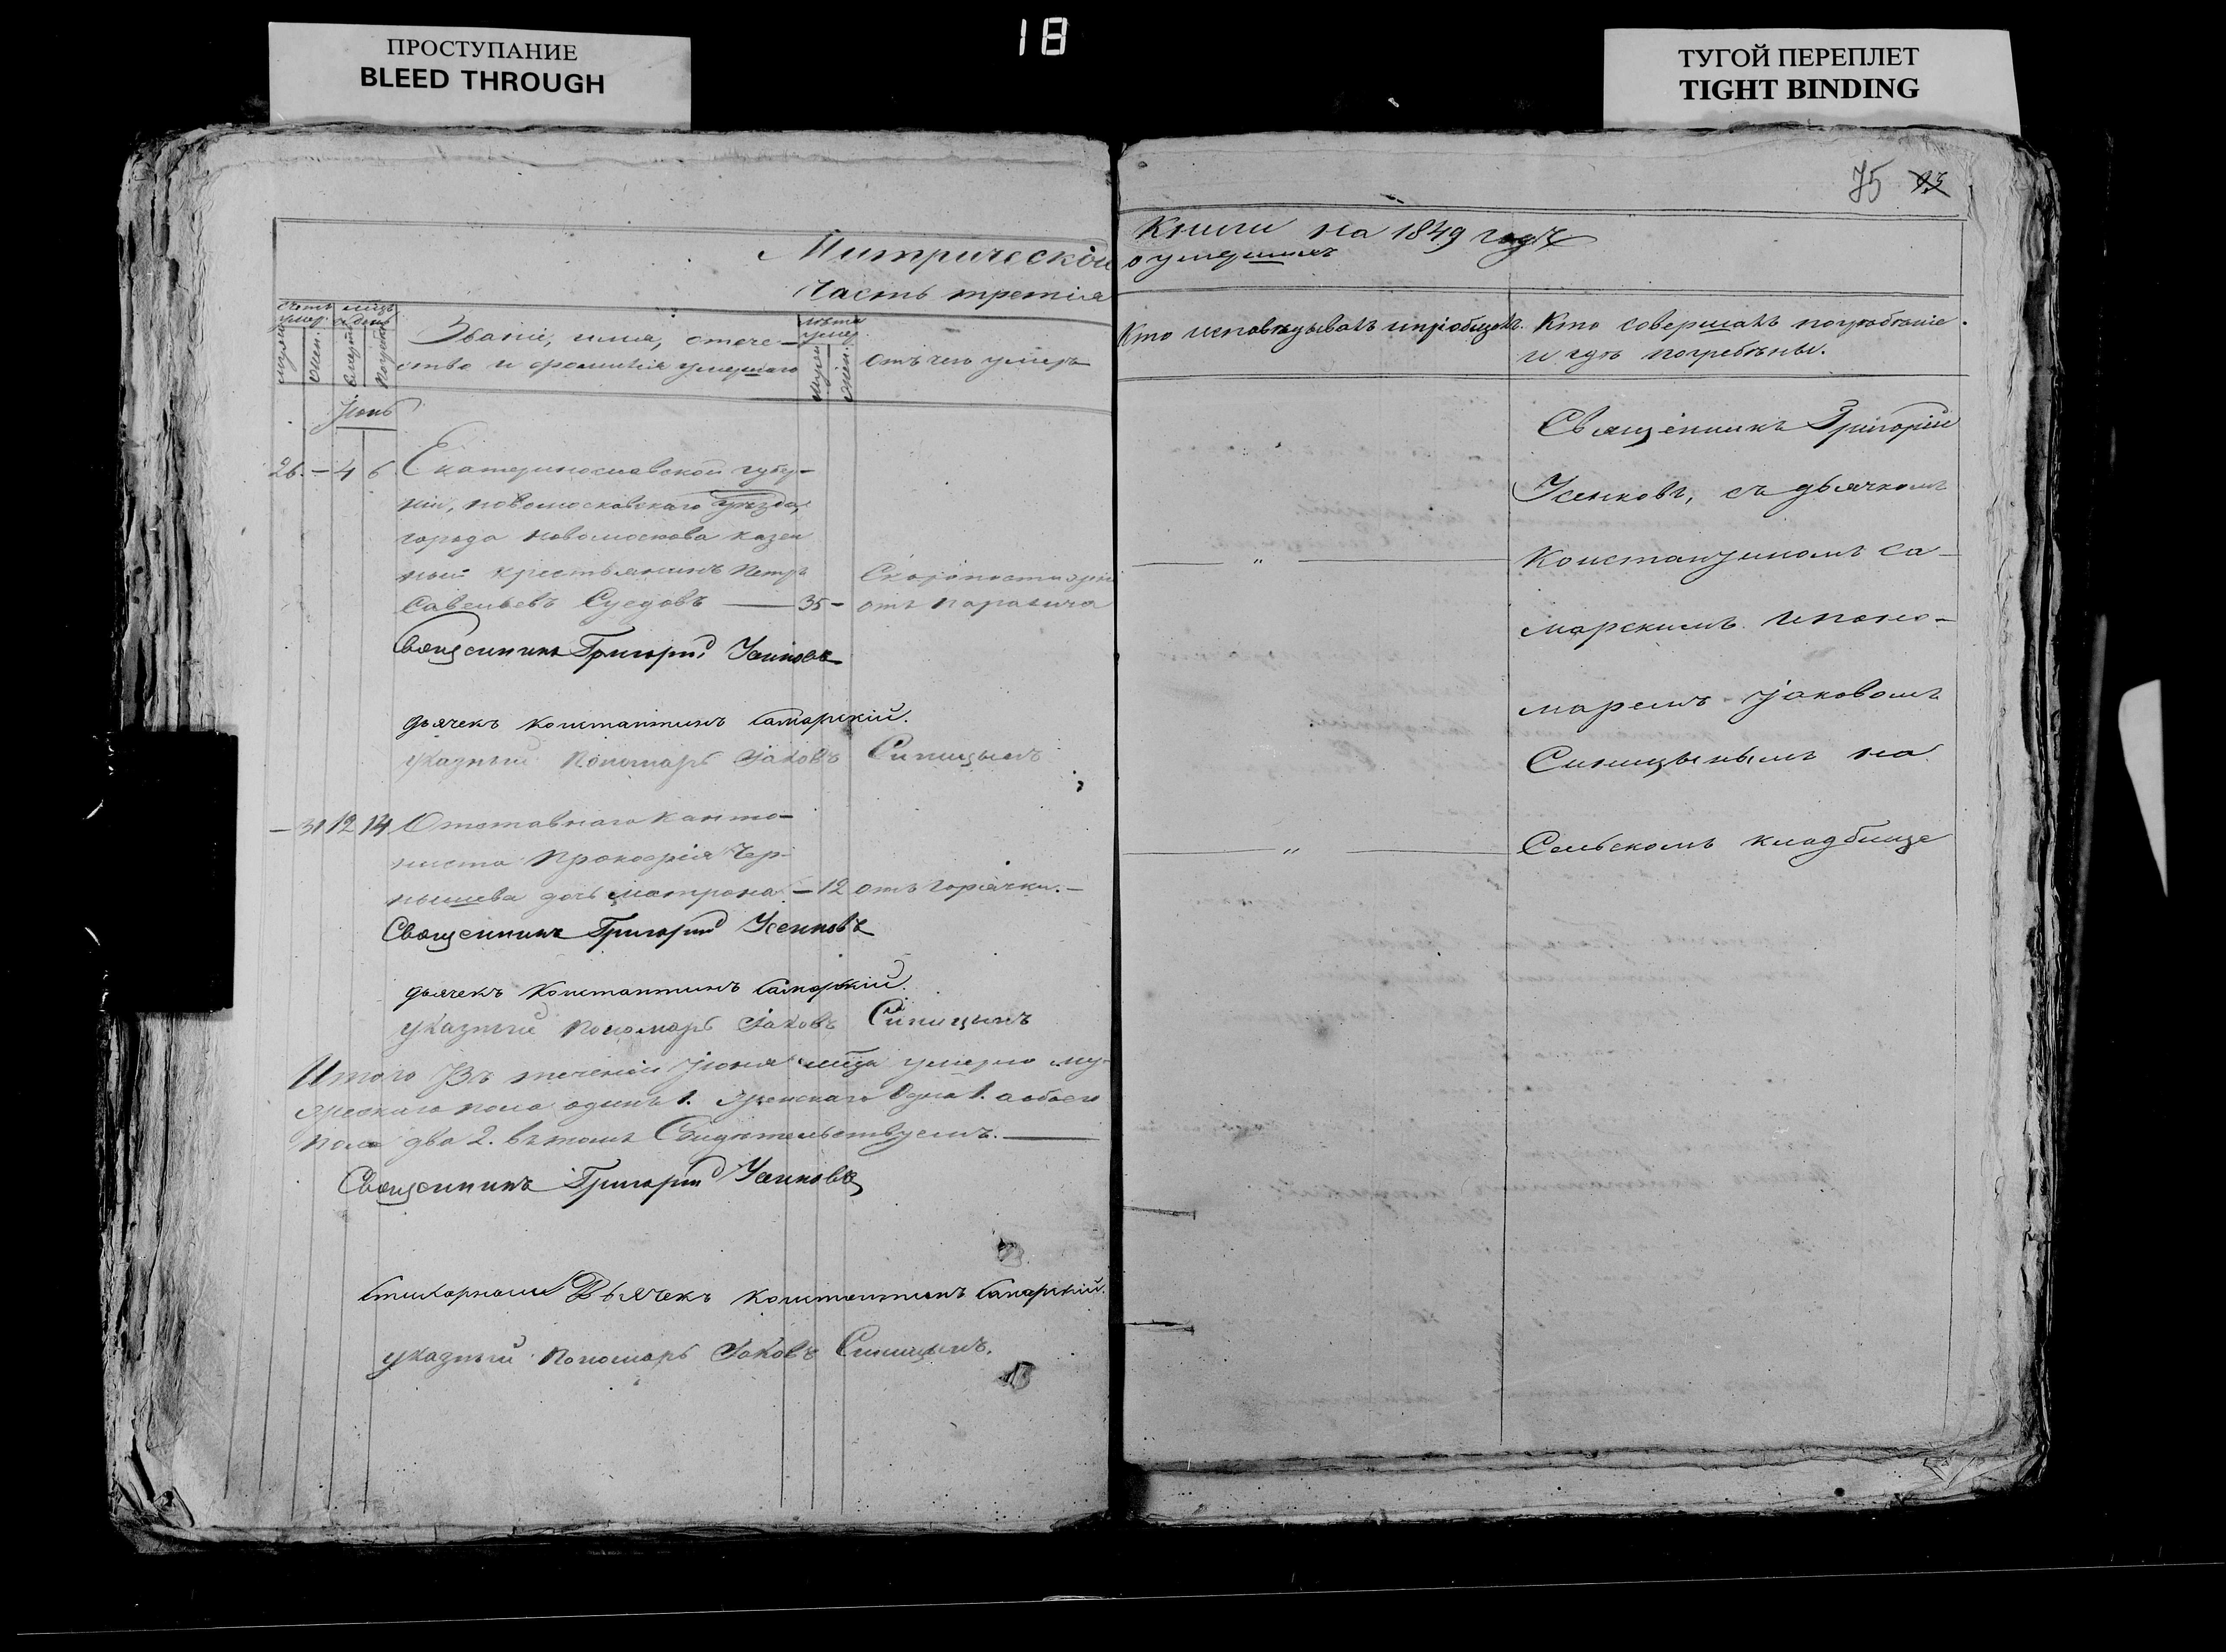 ПРОСТУПАНИЕ
BLEED THROUGH
18
ТУГОЙ ПЕРЕПЛЕТ
TIGHT BINDING
75 93
Митрической
Часть третія
Книги на 1849 годъ
о умершихъ
Званіе, имя, отече-
ство и фамилія умершаго
отъ чего умеръ
Кто исповѣдывалъ и пріобщалъ.
Кто совершалъ погребѣніе
и гдѣ погребѣны.
Іюнь
26. - 4 6 Екатеринославской губер-
ніи, новомосковскаго уѣзда,
города новомосковска казен
ный крестьянинъ Петръ
Савельевъ Суедовъ — 35 -
Скоропостижно
отъ паралича
Священникъ Григорій Усенковъ
дьячекъ Константинъ Самарскій.
указный Пономарь Іаковъ Синицынъ
- 31 12 14 Отставнаго канто-
ниста Прокофія Чер-
нышева дочь Матрона - 12 отъ горячки. -
Священникъ Григорій Усенковъ
дьячекъ Константинъ Самарскій.
указный Пономарь Іаковъ Синицынъ
Итого Въ теченіи Іюня мѣца умерло му-
жескаго пола одинъ 1. Женскаго Одна 1. а обоего
пола два 2. въ томъ Свидѣтельствуемъ. —
Священникъ Григорій Усенковъ
Стихарный Дьячекъ Константинъ Самарскій.
указный Пономарь Іаковъ Синицынъ.
Священникъ Григорій
Усенковъ, съ дьячкомъ
— „ — Константиномъ Са-
марскимъ и поно-
маремъ Іаковомъ
Синицынымъ на
— „ — Сельскомъ кладбище